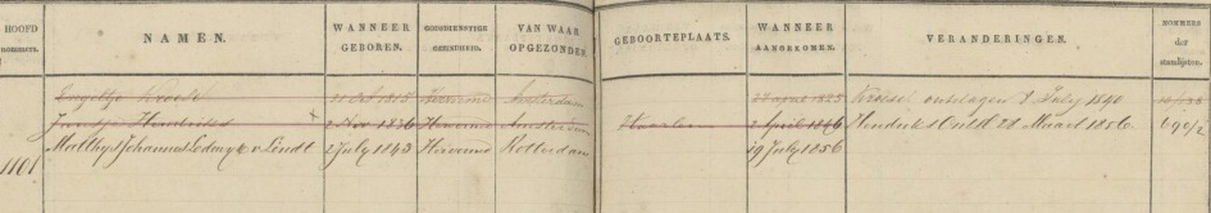 HOOFD nommers. NAMEN. WANNEER GEBOREN. GODSDIENSTIGE GEZINDHEID. VAN WAAR OPGEZONDEN. GEBOORTEPLAATS. WANNEER AANGEKOMEN. VERANDERINGEN. NOMMERS der stamlijsten.
Engeltje 21 Oct 1815 Hervormd Amsterdam 27 april 1825 ontslagen 8 July 1840
Hendriks 2 Nov 1836 Hervormd Amsterdam Haarlem 2 April 1846 Hendriks Ontsl 28 Maart 1856.
1101 Matthijs Johannes Lodewijk v. Lindt 2 July 1843 Hervormd Rotterdam 19 July 1856